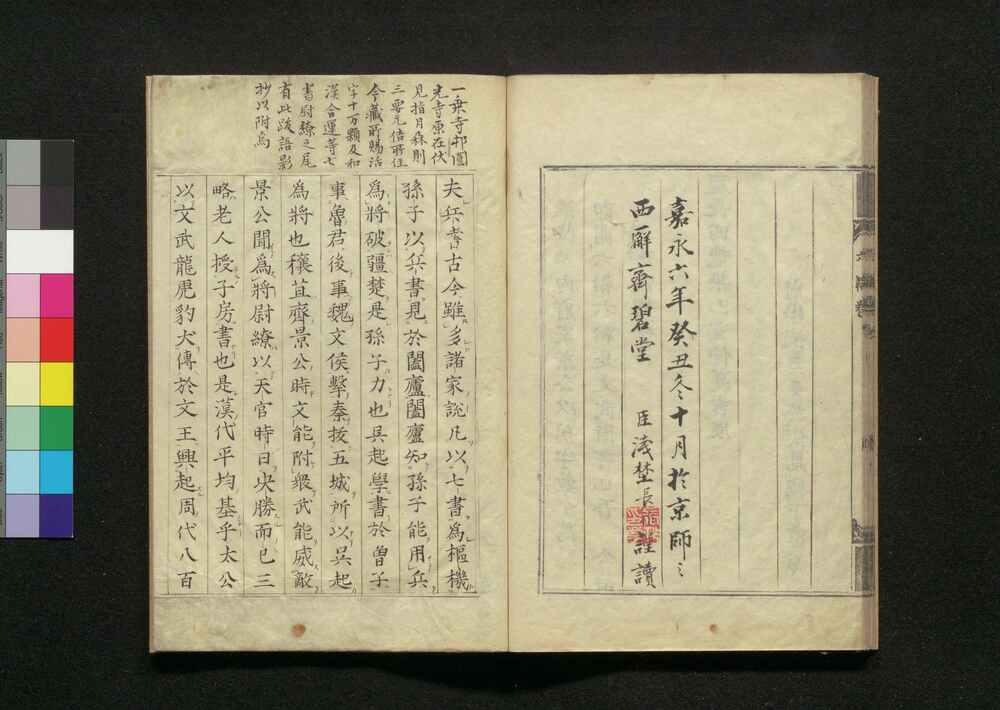 嘉永六年癸丑冬十月於京師之
西解齋碧堂 臣淺埜長 謹讀
一乗寺邨圓
光寺原在伏
見指月森則
三要元佶所住
今藏所賜活
字十万顆及和
漢合運等七
書尉繚之尾
有此跋語影
抄以附焉
夫兵者古今雖多諸家説凡以七書為樞機
孫子以兵書見於闔廬闔廬知孫子能用兵
為將破彊楚是孫子力也呉起學書於曽子
事魯君後事魏文侯撃秦拔五城所以呉起
為將也穰苴齊景公時文能附衆武能威敵
景公聞為將尉繚以天官時日决勝而已三
略老人授子房書也是漢代平均基乎太公
以文武龍虎豹犬傳於文王興起周代八百